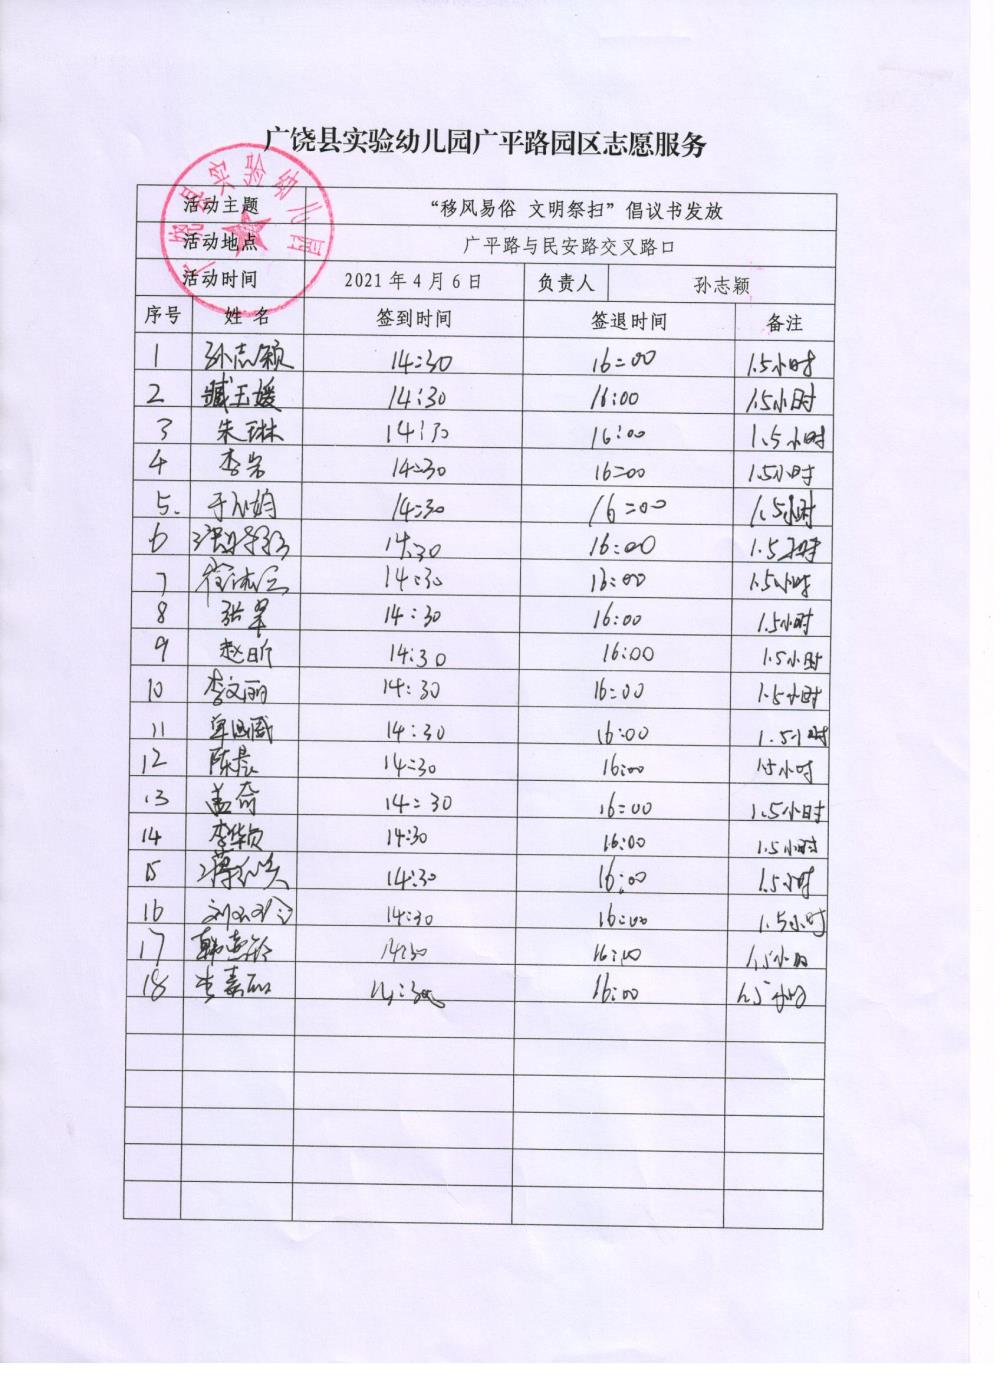 广饶县实验幼儿园广平路园区志愿服务
广饶县实验幼儿园
活动主题 “移风易俗 文明祭扫”倡议书发放
活动地点 广平路与民安路交叉路口
活动时间 2021年4月6日 负责人 孙志颖
序号 姓名 签到时间 签退时间 备注
1 孙志颖 14:30 16:00 1.5小时
2 臧玉媛 14:30 16:00 1.5小时
3 朱琳 14:30 16:00 1.5小时
4 李岩 14:30 16:00 1.5小时
5. 14:30 16:00 1.5小时
6 14:30 16:00 1.5小时
7 14:30 16:00 1.5小时
8 张翠 14:30 16:00 1.5小时
9 赵昕 14:30 16:00 1.5小时
10 李文丽 14:30 16:00 1.5小时
11 14:30 16:00 1.5小时
12 陈晨 14:30 16:00 1.5小时
13 盖奇 14:30 16:00 1.5小时
14 李颖 14:30 16:00 1.5小时
15 14:30 16:00 1.5小时
16 14:30 16:00 1.5小时
17 韩 14:30 16:00 1.5小时
18 14:30 16:00 1.5小时